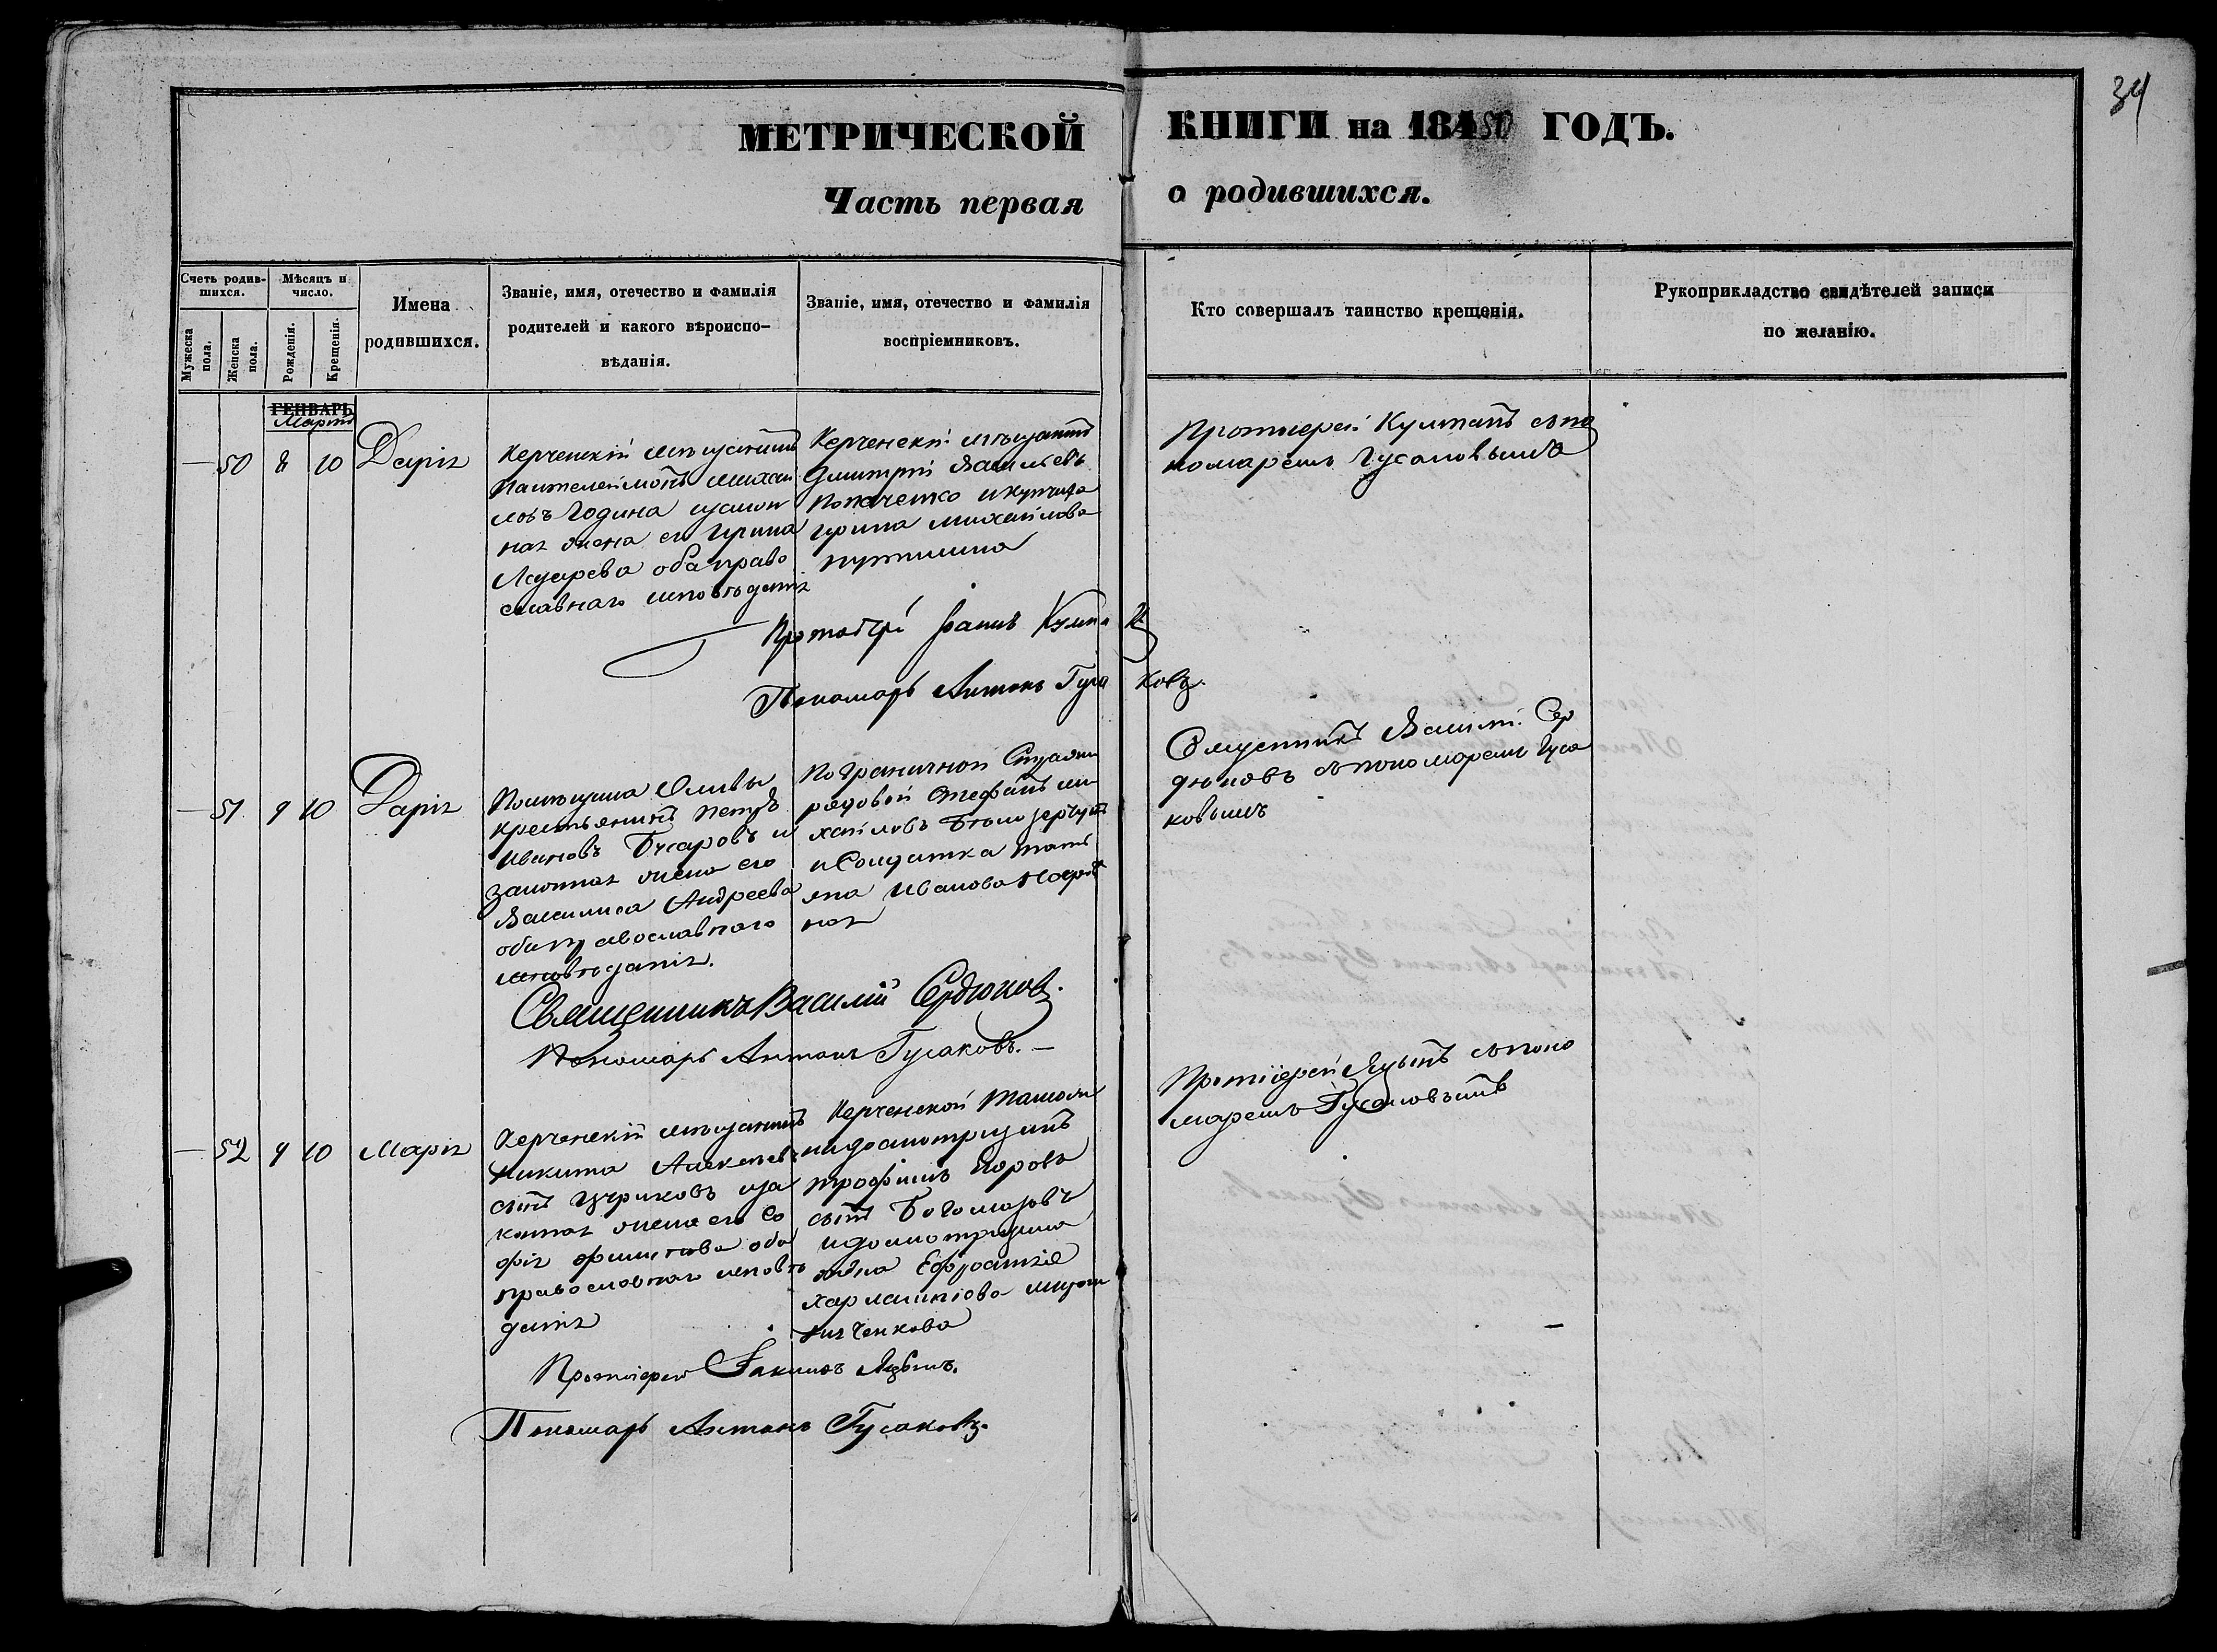 34
МЕТРИЧЕСКОЙ КНИГИ на 18450 ГОДЪ.
Часть первая о родившихся.
Счетъ родив-
шихся.
Мужеска
пола.
Женска
пола.
Мѣсяцъ и
число.
Рожденія.
Крещенія.
Имена
родившихся.
Званіе, имя, отечество и фамилія
родителей и какого вѣроиспо-
вѣданія.
Званіе, имя, отечество и фамилія
воспріемниковъ.
Кто совершалъ таинство крещенія.
Рукоприкладство свидѣтелей записи
по желанію.
ГЕНВАРЬ
Мартъ
— 50 8 10 Дарія
Керченскій мѣщанинъ
Пантелеімонъ Михаи
ловъ Година изакон
ная жена его Ирина
Лазарева оба право
славнаго исповѣданія
Керченскій мѣщанинъ
Дмитрій Васильевъ
икупчиха
Ирина Михаилова
Протоіерей Кумпанъ съпо
номаремъ Гусаковымъ
Протоіерей Іоаннъ Кумпанъ
Пономарь Антонъ Гусаковъ.
— 51 9 10 Дарія
Помѣщика Оливы
крестьянинъ Петръ
Ивановъ и
законная жена его
Василиса Андреева
оба православнаго
исповѣданія.
Пограничной Стражи
рядовой Стефанъ Ми
хаиловъ
иСолдатка Тать
яна Иванова
ная
Священникъ Василій Сер
дюковъ съпономаремъ Гуса
ковымъ
Священникъ Василій Сердюковъ.
Пономарь Антонъ Гусаковъ. —
— 52 9 10 Марія
Керченскій мѣщанинъ
Никита Алексѣевъ
сынъ иза
конная жена его Со
фія оба
православнаго исповѣ
данія
Керченской Таможни
надсмотрщикъ
Трофимъ Егоровъ
сынъ Богомазовъ
идосмотрщика
жена
Протоіерей съпоно
маремъ Гусаковымъ
Протоіерей
Пономарь Антонъ Гусаковъ.